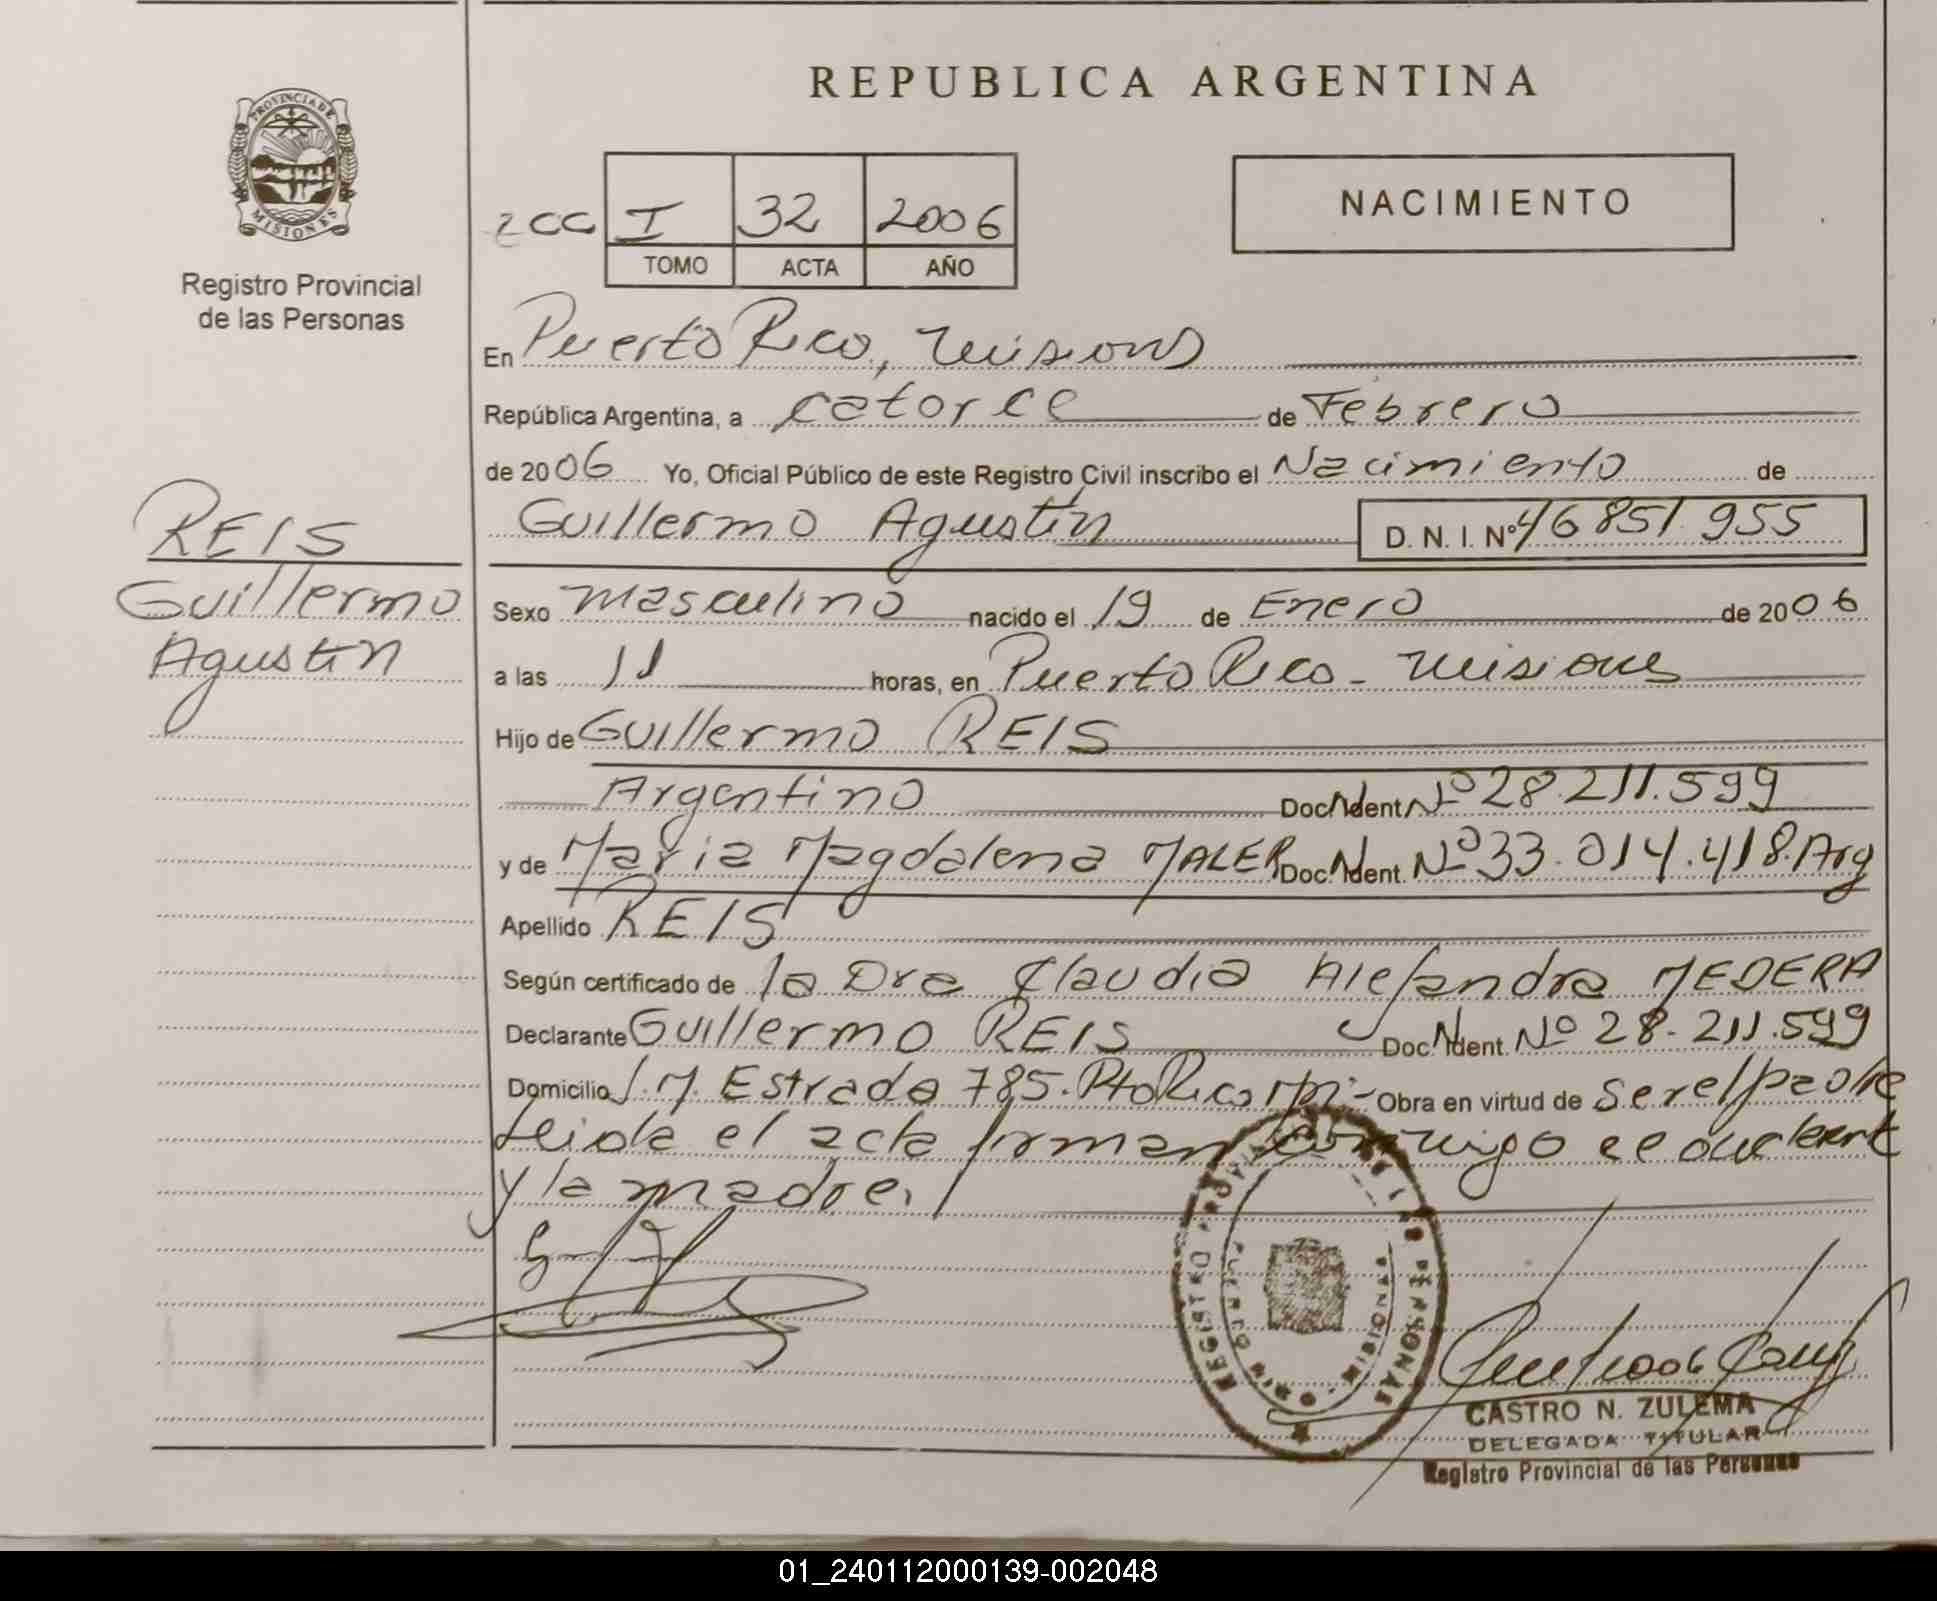 REPUBLICA ARGENTINA
PROVINCIA DE
MISIONES
Registro Provincial
de las Personas
NACIMIENTO
2CC I 32 2006
TOMO ACTA AÑO
En Puerto Rico, Misiones
República Argentina, a catorce de Febrero
de 2006 Yo, Oficial Público de este Registro Civil inscribo el Nacimiento de
Guillermo Agustín D. N. I. Nº 46851.955
REIS
Guillermo
Agustín
Sexo masculino nacido el 19 de Enero de 2006
a las 11 horas, en Puerto Rico - Misiones
Hijo de Guillermo REIS
Argentino Doc. Ident. Nº 28.211.599
y de Maria Magdalena MALER Doc. Ident. Nº 33.014.418. Arg
Apellido REIS
Según certificado de la Dra Claudia Alejandra MEDERA
Declarante Guillermo REIS Doc. Ident. Nº 28.211.599
Domicilio J.M. Estrada 785. Pto Rico Mni- Obra en virtud de ser el padre
Leida el acta firman conmigo el declarante
y la madre.
REGISTRO PROVINCIAL DE LAS PERSONAS
PUERTO RICO MISIONES
CASTRO N. ZULEMA
DELEGADA TITULAR
Registro Provincial de las Personas
01_240112000139-002048